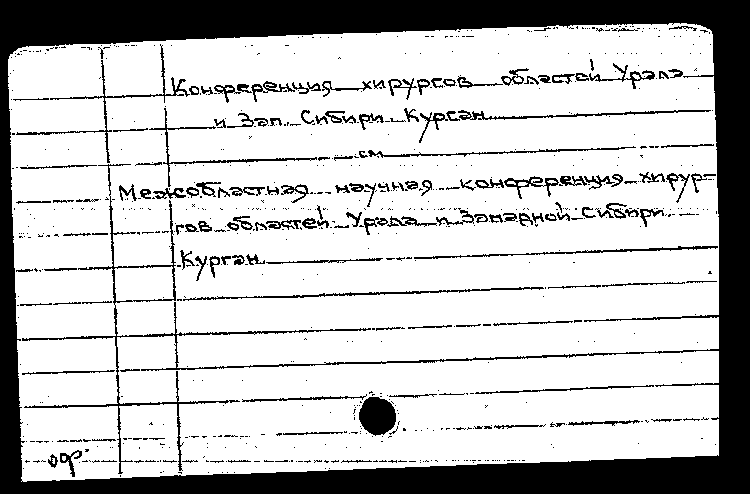 Конференция хирургов областей Урала
и Зап. Сибири. Курган.
см
Межобластная научная конференция хирур-
гов областей Урала и Западной Сибири.
Курган.